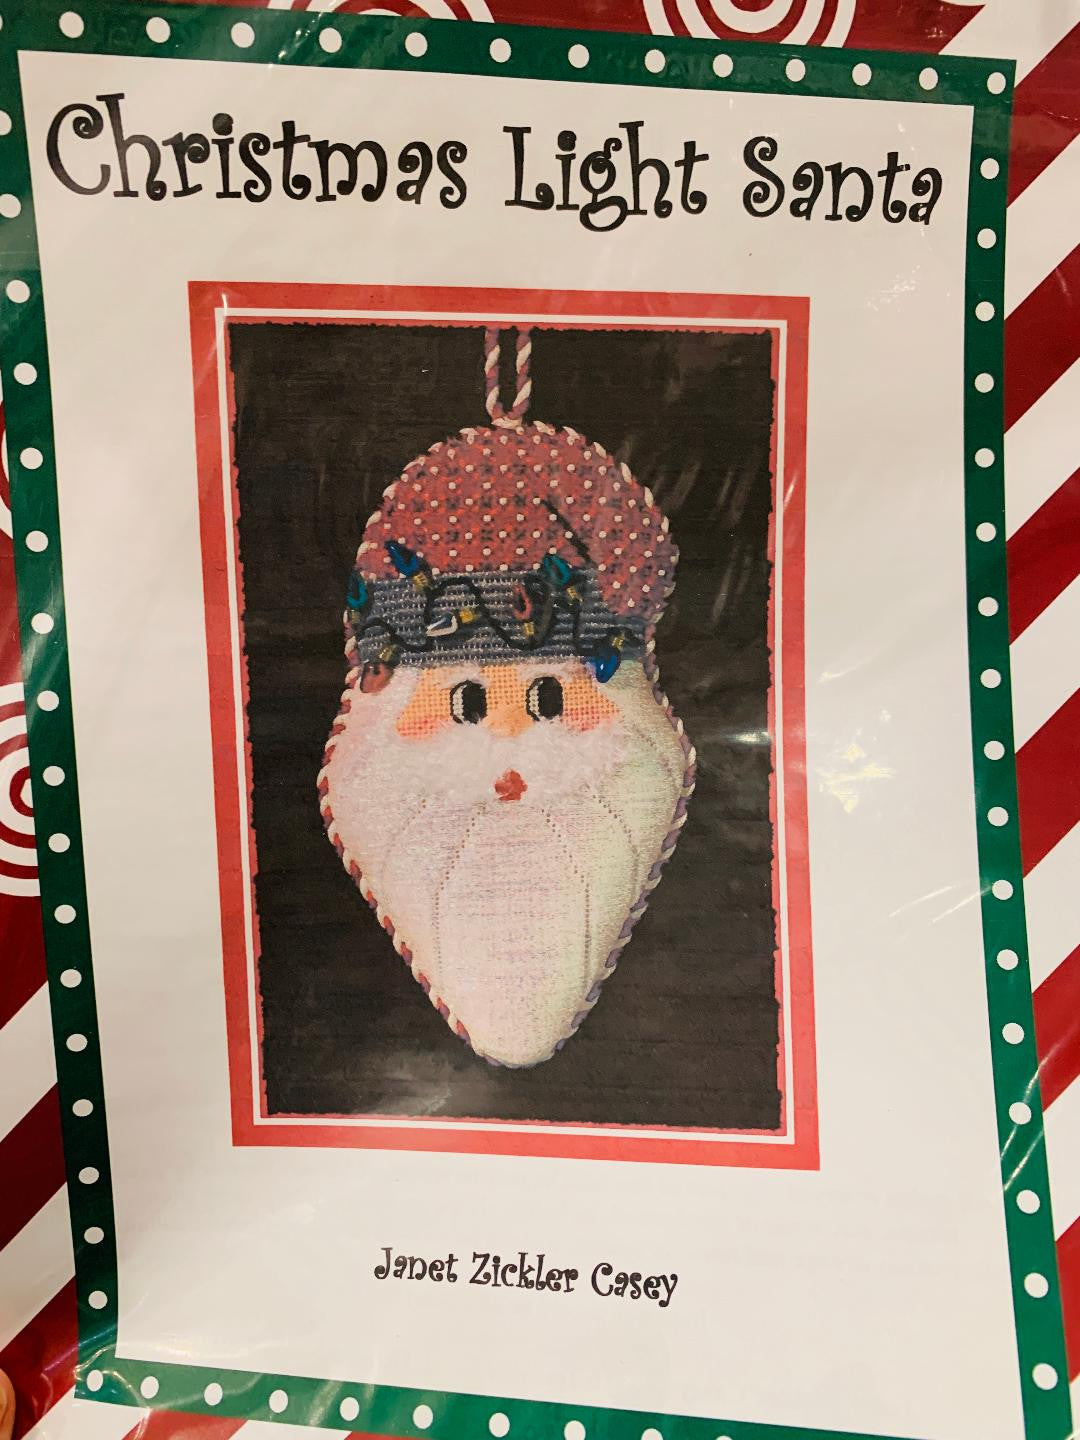 Christmas Light Santa
Janet Zickler Casey